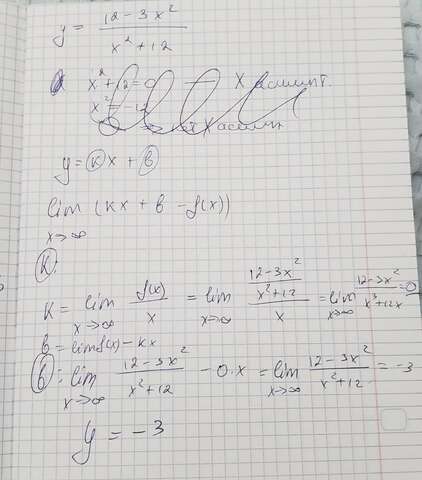 y = (12 - 3x²) / (x² + 12)
x² + 12 = 0
x² = -12
x асимпт.
y = kx + b
lim (kx + b - f(x))
x→∞
k:
k = lim x→∞ f(x)/x = lim x→∞ ((12-3x²)/(x²+12))/x = lim x→∞ (12-3x²)/(x³+12x) = 0
b = lim f(x) - kx
b: lim x→∞ (12-3x²)/(x²+12) - 0·x = lim x→∞ (12-3x²)/(x²+12) = -3
y = -3